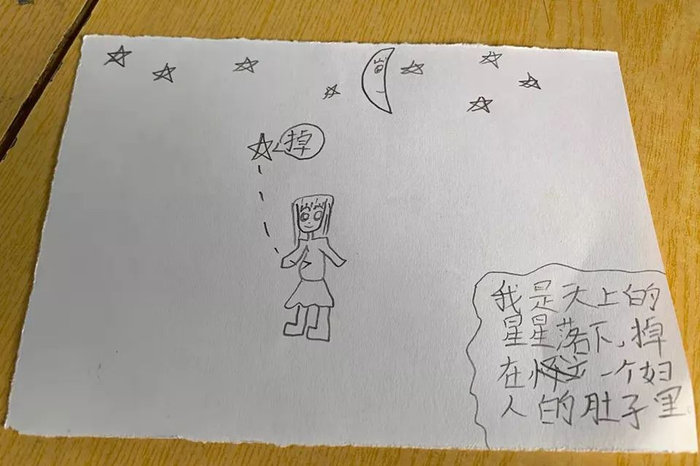 掉
我是天上的
星星落下,掉
在一个妇
人的肚子里